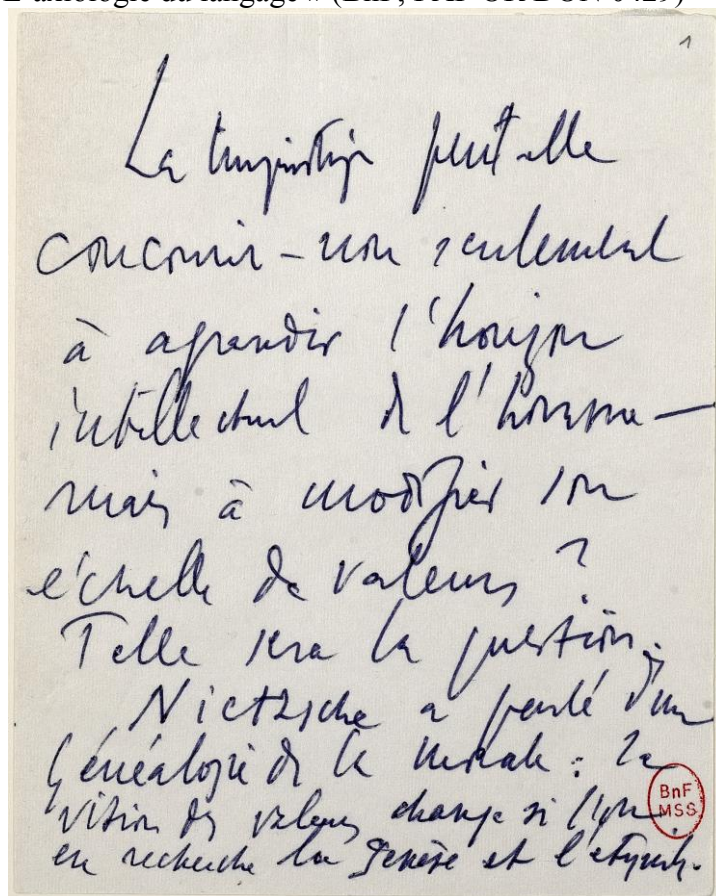 L'axiologie du langage » (BnF, PAP OR DON 0429)
1
La linguistique peut-elle
concourir – non seulement
à agrandir l'horizon
intellectuel de l'homme –
mais à modifier son
échelle de valeurs ?
Telle sera la question.
Nietzsche a parlé d'une
Généalogie de la morale : la
vision des valeurs change si l'on
en recherche la genèse et l'étym.
BnF
MSS